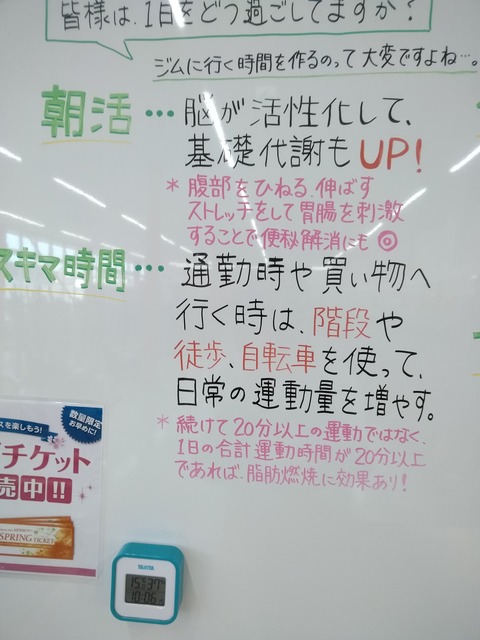 皆様は、1日をどう過ごしてますか?
ジムに行く時間を作るのって大変ですよね…。
朝活…脳が活性化して、
基礎代謝もUP!
*腹部をひねる、伸ばす
ストレッチをして胃腸を刺激
することで便秘解消にも◎
スキマ時間…通勤時や買い物へ
行く時は、階段や
徒歩、自転車を使って、
日常の運動量を増やす。
*続けて20分以上の運動ではなく、
1日の合計運動時間が20分以上
であれば、脂肪燃焼に効果あり!
スを楽しもう!
数量限定
お早めに!
チケット
売中!!
SPRING TICKET
TANITA
10:06